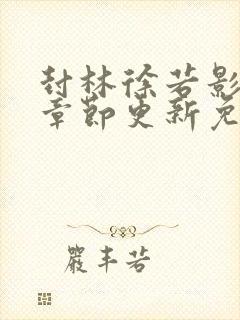 封林徐若影
章节更新免
嚴丰若